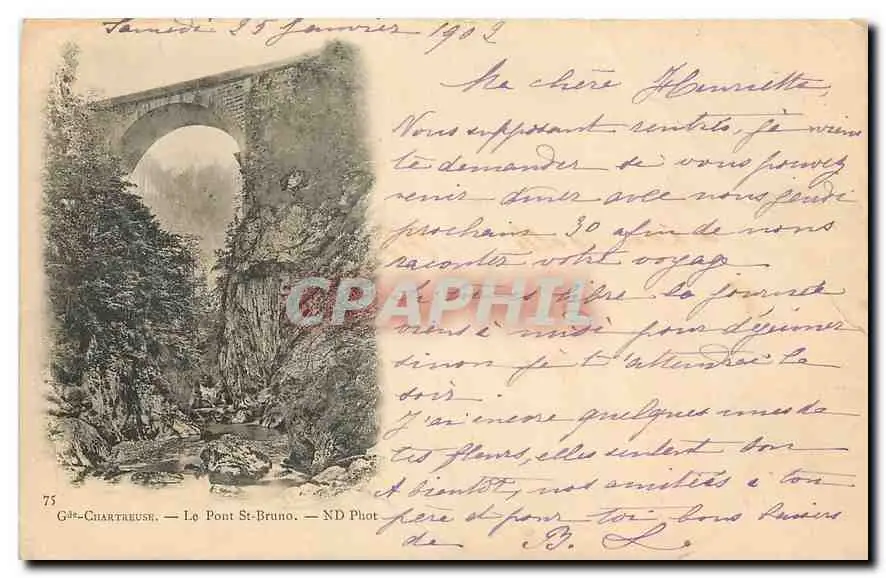 Samedi 25 Janvier 1902
Ma chère Henriette,
Vous supposant rentrés, je viens
te demander si vous pouvez
venir dîner avec nous jeudi
prochain 30 afin de nous
raconter votre voyage
libre la journée
viens à midi pour déjeuner
sinon je t'attendrai le
soir.
J'ai encore quelques unes de
tes fleurs, elles sentent bon
A bientôt, nos amitiés à ton
père et pour toi bons baisers
de B. L.
CPAPHIL
75
Gde-CHARTREUSE. — Le Pont St-Bruno. — ND Phot